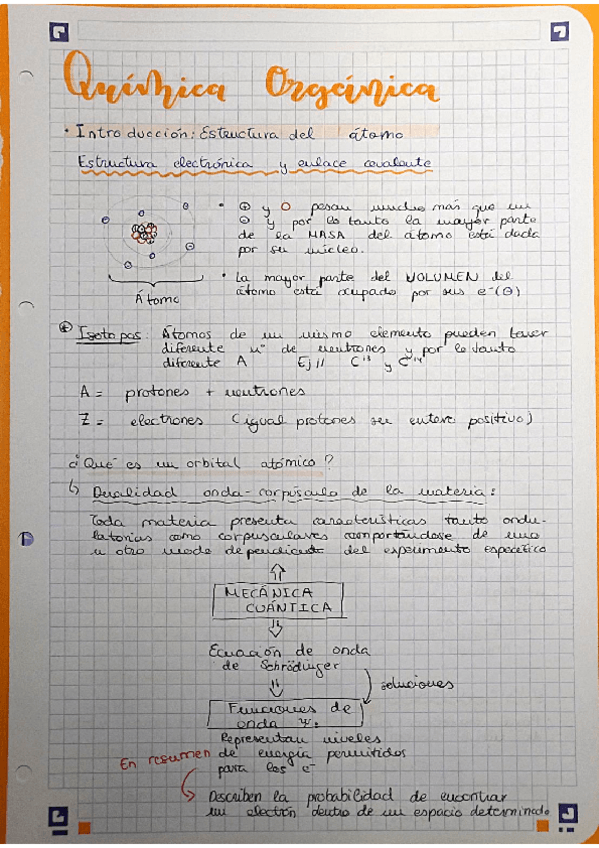 Química Orgánica
• Introducción: Estructura del átomo
Estructura electrónica y enlace covalente
• ⊕ y O pesan mucho más que un
⊖ y por lo tanto la mayor parte
de la MASA del átomo está dada
por su núcleo.
• La mayor parte del VOLUMEN del
átomo está ocupado por sus e⁻(⊖)
Átomo
Isótopos: Átomos de un mismo elemento pueden tener
diferente nº de neutrones y por lo tanto
diferente A Ej// C¹³ y C¹⁴
A = protones + neutrones
Z = electrones (igual protones su entero positivo)
¿Qué es un orbital atómico?
↳ Dualidad onda-corpúsculo de la materia:
Toda materia presenta características tanto ondu-
latorias como corpusculares comportándose de uno
u otro modo dependiendo del experimento específico
MECÁNICA
CUÁNTICA
Ecuación de onda
de Schrödinger
soluciones
Funciones de
onda Ψ:
Representan niveles
En resumen de energía permitidos
para los e⁻
Describen la probabilidad de encontrar
un electrón dentro de un espacio determinado